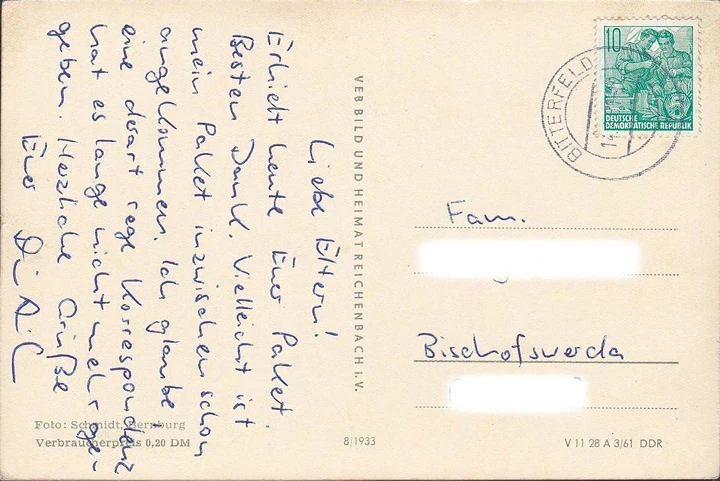 Liebe Eltern!
Erhielt heute Euer Paket.
Besten Dank. Vielleicht ist
mein Paket inzwischen schon
angekommen. Ich glaube
eine derart rege Korrespondenz
hat es lange nicht mehr ge-
geben. Herzliche Grüße
Euer
VEB BILD UND HEIMAT REICHENBACH I. V.
10
DEUTSCHE
DEMOKRATISCHE REPUBLIK
BITTERFELD
Fam.
Bischofswerda
Foto: Schmidt, Bernburg
Verbraucherpreis 0,20 DM
8/1933
V 11 28 A 3/61 DDR